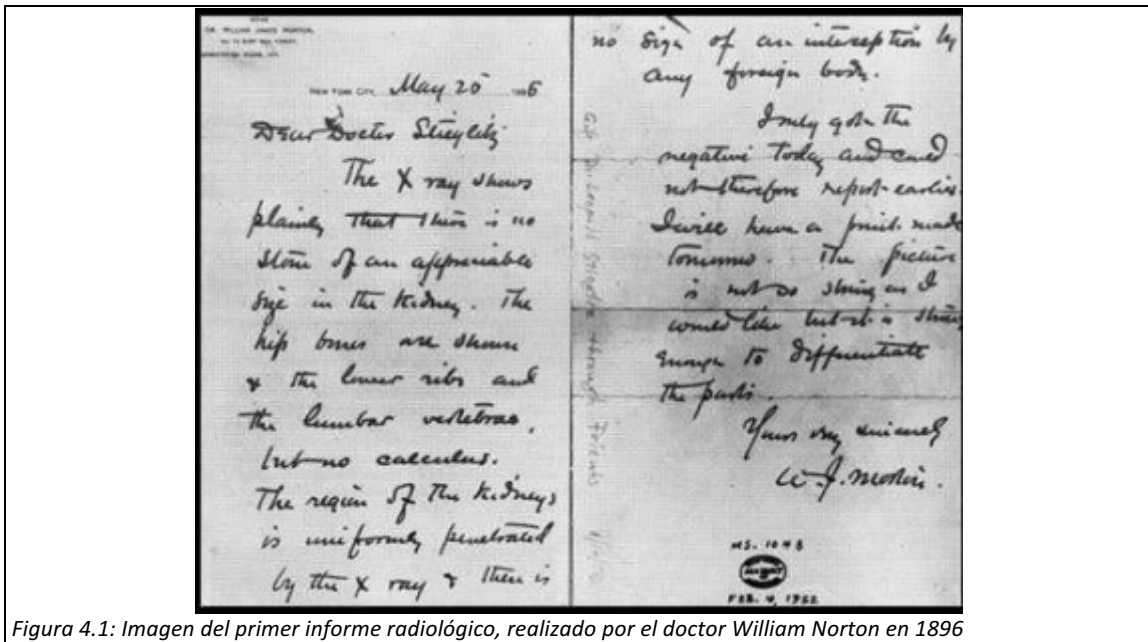 DR. WILLIAM JAMES MORTON,
NEW YORK CITY, May 25 1896
Dear Doctor Stieglitz
The X ray shows
plainly that there is no
stone of an appreciable
size in the kidney. The
hip bones are shown
& the lower ribs and
the lumbar vertebrae,
but no calculus.
The region of the kidneys
is uniformly penetrated
by the X ray & there is
no sign of an interception by
any foreign body.
I only got the
negative today and could
not therefore report earlier.
I will have a print made
tomorrow. The picture
is not so strong as I
would like but it is strong
enough to differentiate
the parts.
Yours very sincerely
W. J. Morton.
MS. 1048
FEB. 4, 1952
Figura 4.1: Imagen del primer informe radiológico, realizado por el doctor William Norton en 1896